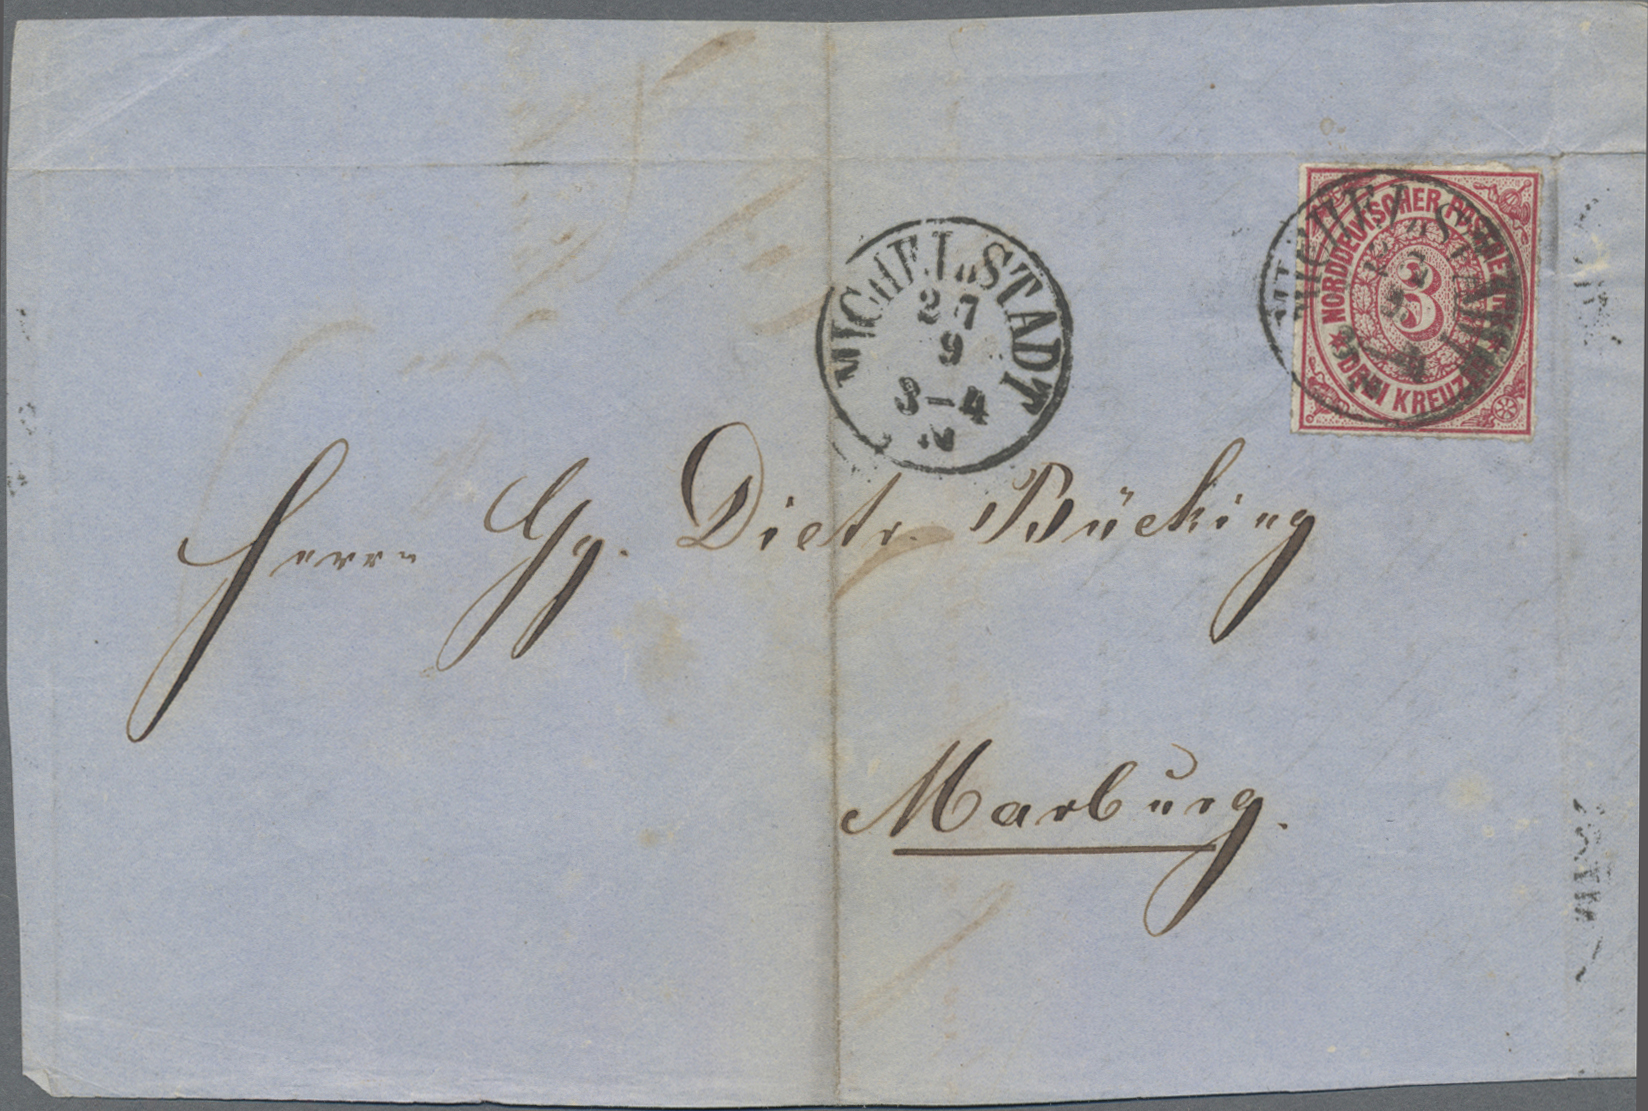 NORDDEUTSCHER POSTBEZIRK
3
DREI KREUZER
MICHELSTADT
27
9
3-4
N
Herrn Gg. Dietr. Bücking
Marburg.